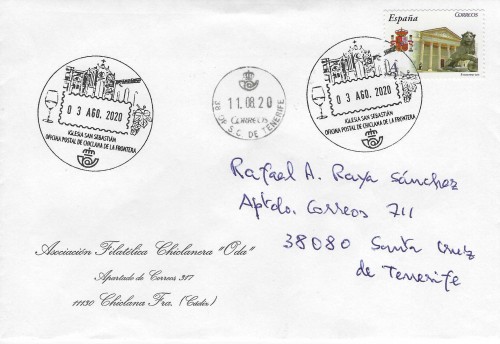 España
CORREOS
03 AGO. 2020
IGLESIA SAN SEBASTIÁN
OFICINA POSTAL DE CHICLANA DE LA FRONTERA
11.08.20
CORREOS
38 OP S.C. DE TENERIFE
03 AGO. 2020
IGLESIA SAN SEBASTIÁN
OFICINA POSTAL DE CHICLANA DE LA FRONTERA
Rafael A. Raya Sánchez
Aptdo. Correos 711
38080 Santa Cruz
de Tenerife
Asociación Filatélica Chiclanera "Oda"
Apartado de Correos 317
11130 Chiclana Fra. (Cádiz)